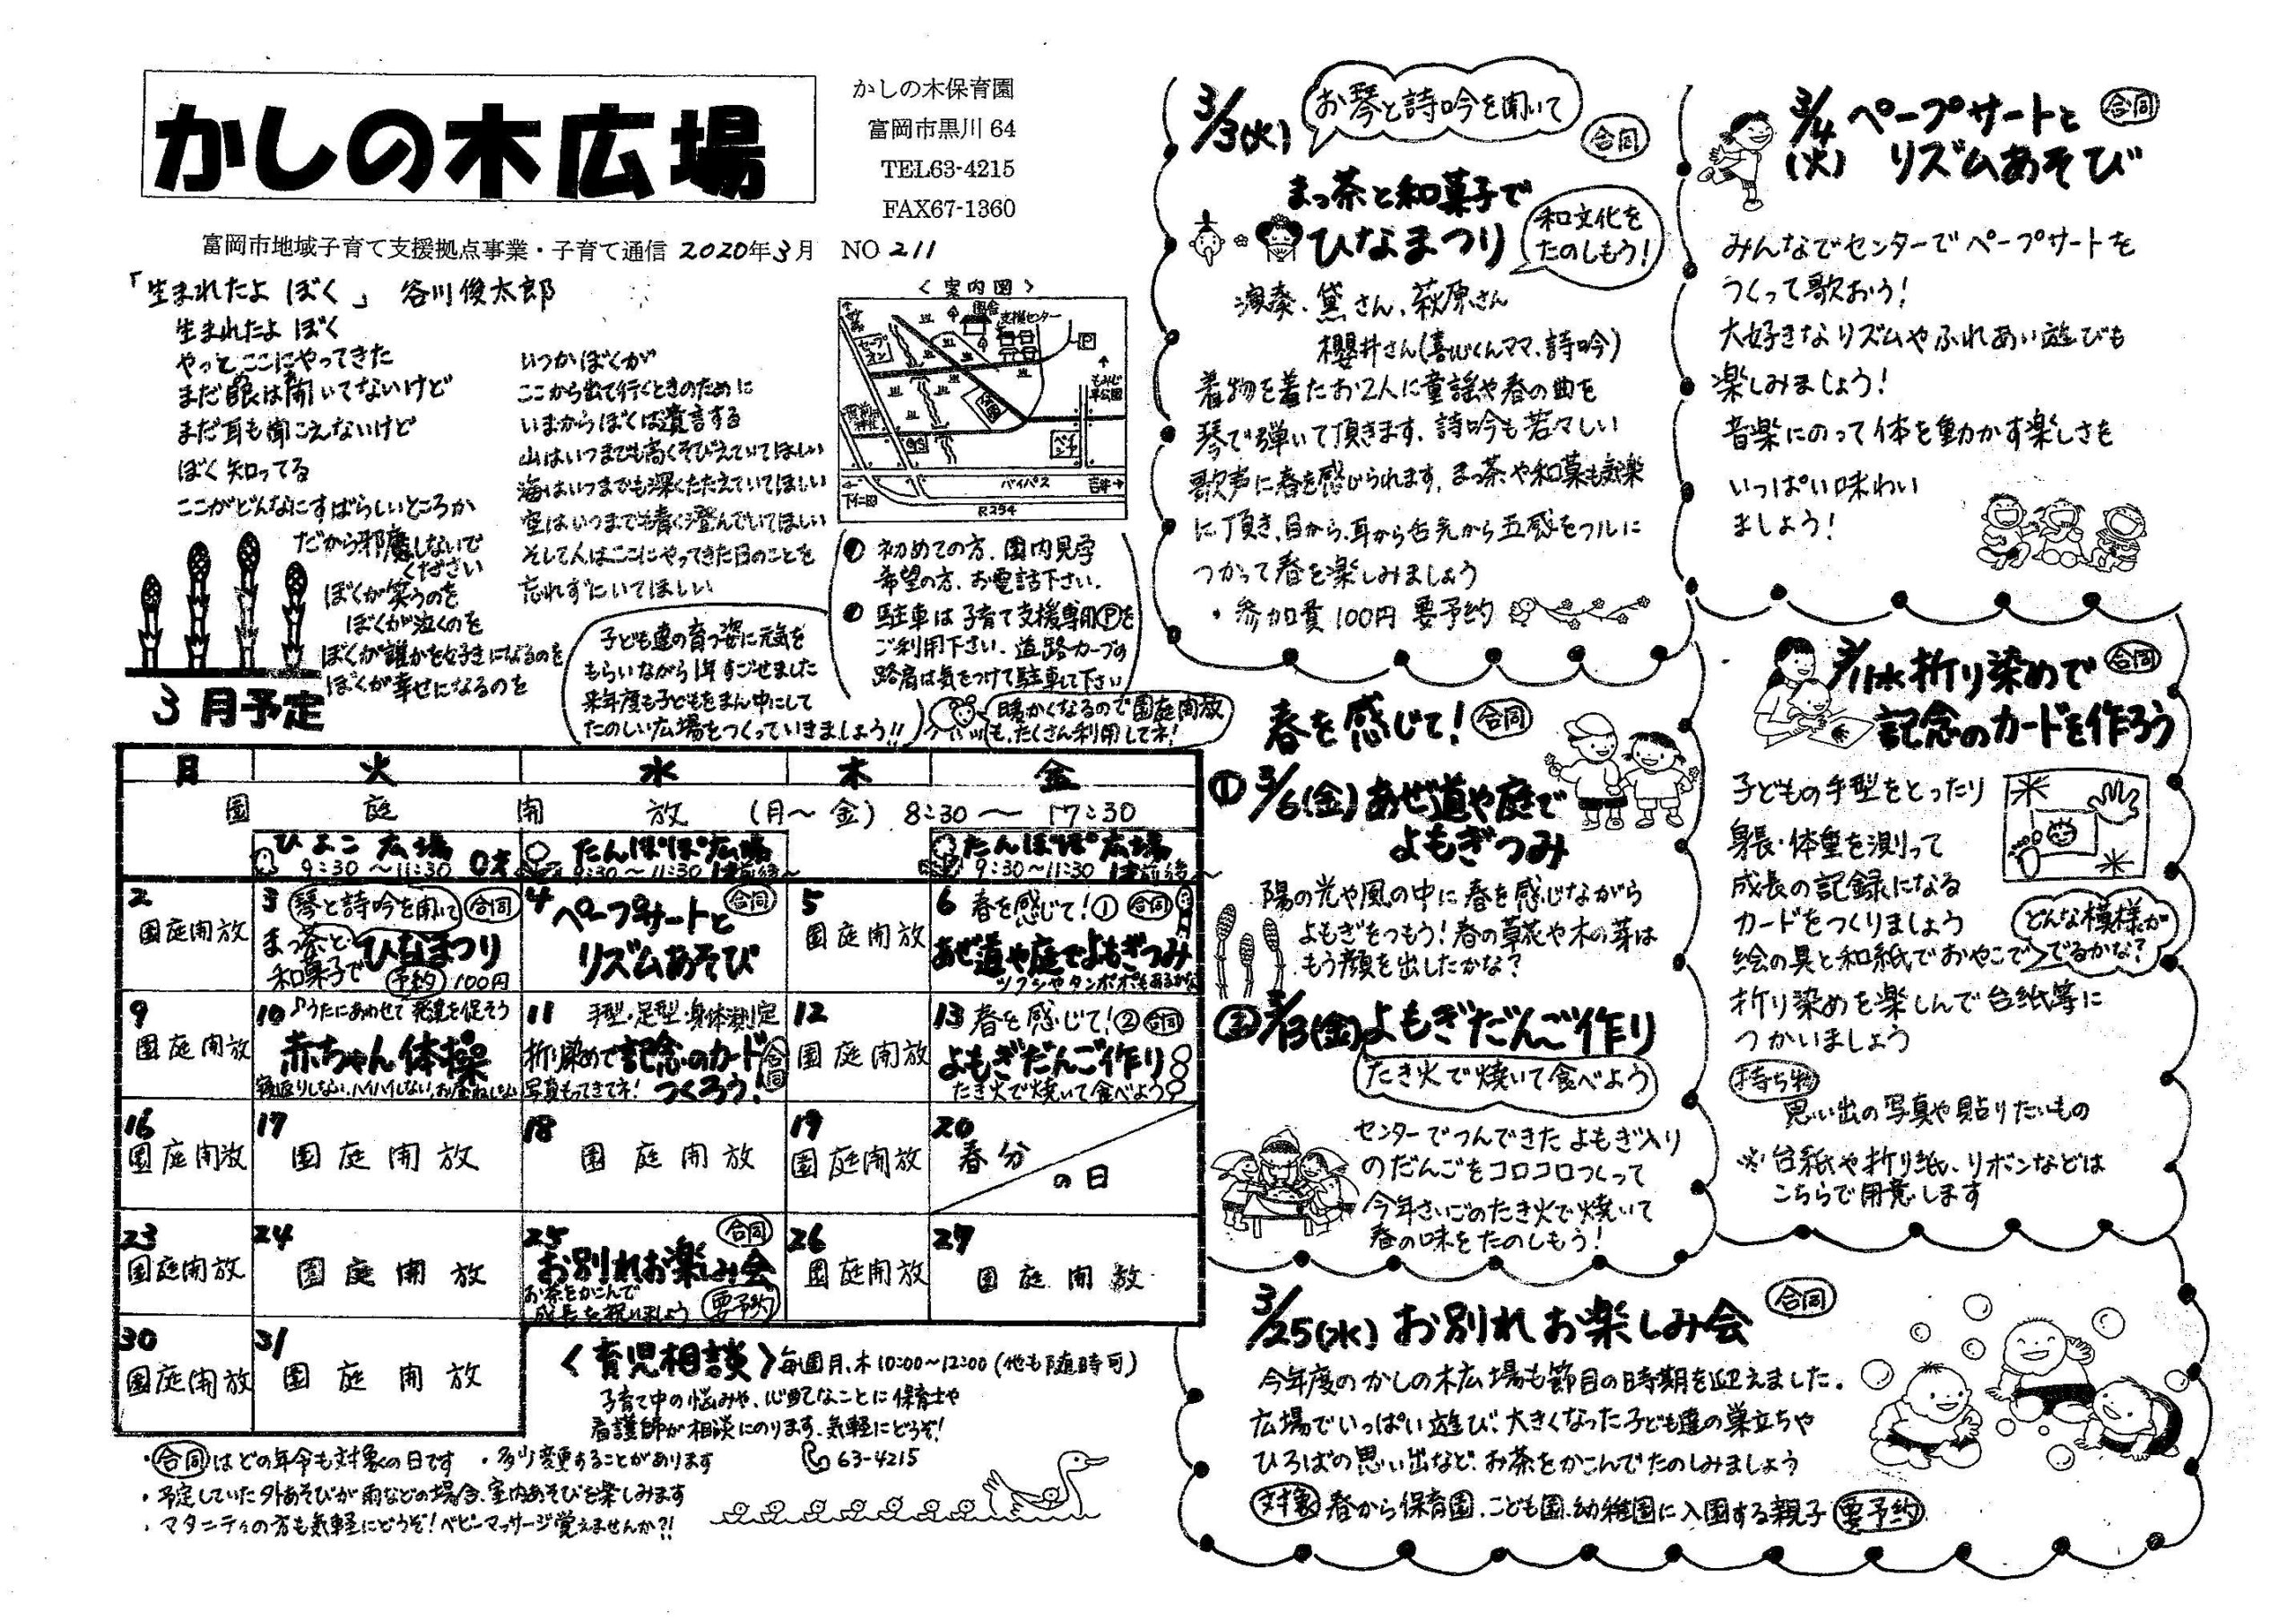 かしの木広場
かしの木保育園
富岡市黒川 64
TEL63-4215
FAX67-1360
富岡市地域子育て支援拠点事業・子育て通信 2020年3月 NO 211
「生まれたよ ぼく」 谷川俊太郎
生まれたよ ぼく
やっと ここにやってきた
まだ眼は開いてないけど
まだ耳も聞こえないけど
ぼく知ってる
ここがどんなにすばらしいところか
だから邪魔しないで
ください
ぼくが笑うのを
ぼくが泣くのを
ぼくが誰かを好きになるのを
ぼくが幸せになるのを
いつかぼくが
ここから出て行くときのために
いまからぼくは遺言する
山はいつまでも高くそびえていてほしい
海はいつまでも深くたたえていてほしい
空はいつまでも青く澄んでいてほしい
そして人はここにやってきた日のことを
忘れずにいてほしい
〈案内図〉
園舎
支援センター
セブン
P
バイパス
吉井→
下仁田
R254
GS
❶ 初めての方、園内見学
希望の方、お電話下さい。
❷ 駐車は子育て支援専用Ⓟを
ご利用下さい。道路カーブの
路肩は気をつけて駐車して下さい
子ども達の育つ姿に元気を
もらいながら1年すごせました
来年度も子どもをまん中にして
たのしい広場をつくっていきましょう!!
暖かくなるので園庭開放
も、たくさん利用してネ!
3月予定
月 火 水 木 金
園庭開放 (月〜金) 8:30〜17:30
ひよこ広場
9:30〜11:30 0才
たんぽぽ広場
9:30〜11:30 1才前後〜
たんぽぽ広場
9:30〜11:30 1才前後〜
2
園庭開放
3 琴と詩吟を聞いて 合同
まっ茶と
和菓子で ひなまつり
予約 100円
4 合同
ペープサートと
リズムあそび
5
園庭開放
6 春を感じて!① 合同
あぜ道や庭でよもぎつみ
ツクシやタンポポもあるかな
9
園庭開放
10 ♪うたにあわせて発達を促そう
赤ちゃん体操
寝返りしない、ハイハイしない、お昼ねしない
11 手型・足型・身体測定
折り染めで記念のカード 合同
写真もってきてネ! つくろう!
12
園庭開放
13 春を感じて!② 合同
よもぎだんご作り
たき火で焼いて食べよう
16
園庭開放
17
園庭開放
18
園庭開放
19
園庭開放
20
春分
の日
23
園庭開放
24
園庭開放
25 合同
お別れお楽しみ会
お茶をかこんで
成長を祝いましょう 要予約
26
園庭開放
27
園庭開放
30
園庭開放
31
園庭開放
〈育児相談〉毎週月、木 10:00〜12:00 (他も随時可)
子育て中の悩みや、心配なことに保育士や
看護師が相談にのります。気軽にどうぞ!
63-4215
・合同はどの年令も対象の日です ・多少変更することがあります
・予定していた外あそびが雨などの場合、室内あそびを楽しみます
・マタニティの方も気軽にどうぞ!ベビーマッサージ覚えませんか?!
3/3(火)
お琴と詩吟を聞いて
合同
まっ茶と和菓子で
ひなまつり
和文化を
たのしもう!
演奏、黛さん、萩原さん
櫻井さん(喜心くんママ、詩吟)
着物を着たお2人に童謡や春の曲を
琴で弾いて頂きます。詩吟も若々しい
歌声に春を感じられます。まっ茶や和菓も気楽
に頂き、目から、耳から舌先から五感をフルに
つかって春を楽しみましょう
・参加費100円 要予約
3/4 ペープサートと 合同
(火) リズムあそび
みんなでセンターでペープサートを
つくって歌おう!
大好きなリズムやふれあい遊びも
楽しみましょう!
音楽にのって体を動かす楽しさを
いっぱい味わい
ましょう!
春を感じて! 合同
① 3/6(金)あぜ道や庭で
よもぎつみ
陽の光や風の中に春を感じながら
よもぎをつもう!春の草花や木の芽は
もう顔を出したかな?
② 3/13(金)よもぎだんご作り
たき火で焼いて食べよう
センターでつんできたよもぎ入り
のだんごをコロコロつくって
今年さいごのたき火で焼いて
春の味をたのしもう!
3/11水 折り染めで 合同
記念のカードを作ろう
子どもの手型をとったり
身長・体重を測って
成長の記録になる
カードをつくりましょう
絵の具と和紙でおやこで
折り染めを楽しんで台紙等に
つかいましょう
どんな模様が
でるかな?
持ち物
思い出の写真や貼りたいもの
※台紙や折り紙、リボンなどは
こちらで用意します
3/25(水) お別れお楽しみ会 合同
今年度のかしの木広場も節目の時期を迎えました。
広場でいっぱい遊び、大きくなった子ども達の巣立ちや
ひろばの思い出など、お茶をかこんでたのしみましょう
対象 春から保育園、こども園、幼稚園に入園する親子 要予約